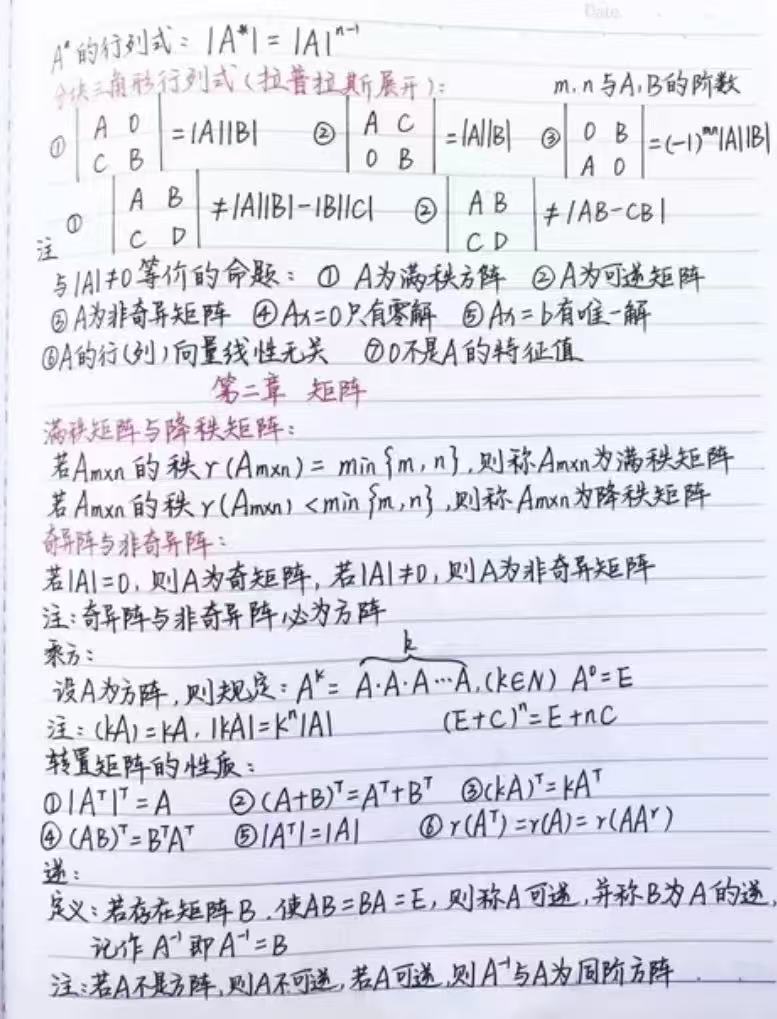 Date.
A*的行列式：|A*|=|A|ⁿ⁻¹
分块三角形行列式（拉普拉斯展开）： m,n与A,B的阶数
① |A 0; C B| =|A||B| ② |A C; 0 B| =|A||B| ③ |0 B; A 0| =(-1)ᵐⁿ|A||B|
注 ① |A B; C D| ≠|A||B|-|B||C| ② |A B; C D| ≠|AB-CB|
与|A|≠0等价的命题：① A为满秩方阵 ②A为可逆矩阵
③A为非奇异矩阵 ④Ax=0只有零解 ⑤Ax=b有唯一解
⑥A的行(列)向量线性无关 ⑦0不是A的特征值
第二章 矩阵
满秩矩阵与降秩矩阵：
若Am×n的秩r(Am×n)=min{m,n},则称Am×n为满秩矩阵
若Am×n的秩r(Am×n)<min{m,n},则称Am×n为降秩矩阵
奇异阵与非奇异阵：
若|A|=0,则A为奇矩阵,若|A|≠0,则A为非奇异矩阵
注：奇异阵与非奇异阵必为方阵
乘方： k
设A为方阵,则规定：Aᵏ=A·A·A…A,(k∈N) A⁰=E
注：(kA)=kA,|kA|=kⁿ|A| (E+C)ⁿ=E+nC
转置矩阵的性质：
①|Aᵀ|ᵀ=A ②(A+B)ᵀ=Aᵀ+Bᵀ ③(kA)ᵀ=kAᵀ
④(AB)ᵀ=BᵀAᵀ ⑤|Aᵀ|=|A| ⑥r(Aᵀ)=r(A)=r(AAʳ)
逆：
定义：若存在矩阵B,使AB=BA=E,则称A可逆,并称B为A的逆,
记作A⁻¹即A⁻¹=B
注：若A不是方阵,则A不可逆,若A可逆,则A⁻¹与A为同阶方阵